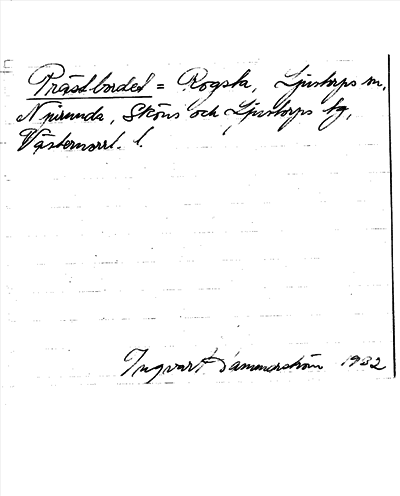 Prästbordet = Rogsta, Ljustorps sn,
Njurunda, Sköns och Ljustorps tg,
Västernorrl. l.
Ingvar Hammarström 1932